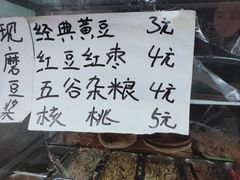 现磨豆浆
经典黄豆 3元
红豆红枣 4元
五谷杂粮 4元
核桃 5元